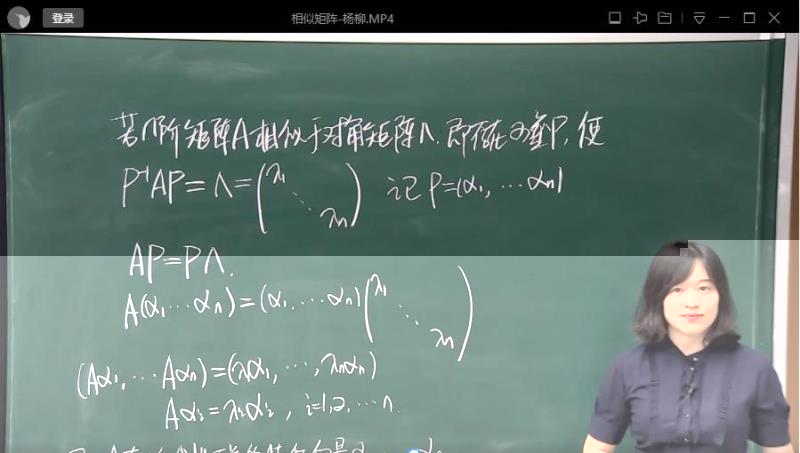 登录
相似矩阵-杨柳.MP4
若n阶矩阵A相似于对角矩阵Λ,即存在可逆P,使
P⁻¹AP=Λ=(λ₁ ⋱ λn) 记P=(α₁,⋯αn)
AP=PΛ.
A(α₁⋯αn)=(α₁,⋯αn)(λ₁ ⋱ λn)
(Aα₁,⋯Aαn)=(λα₁,⋯,λnαn)
Aαi=λiαi, i=1,2,⋯n.